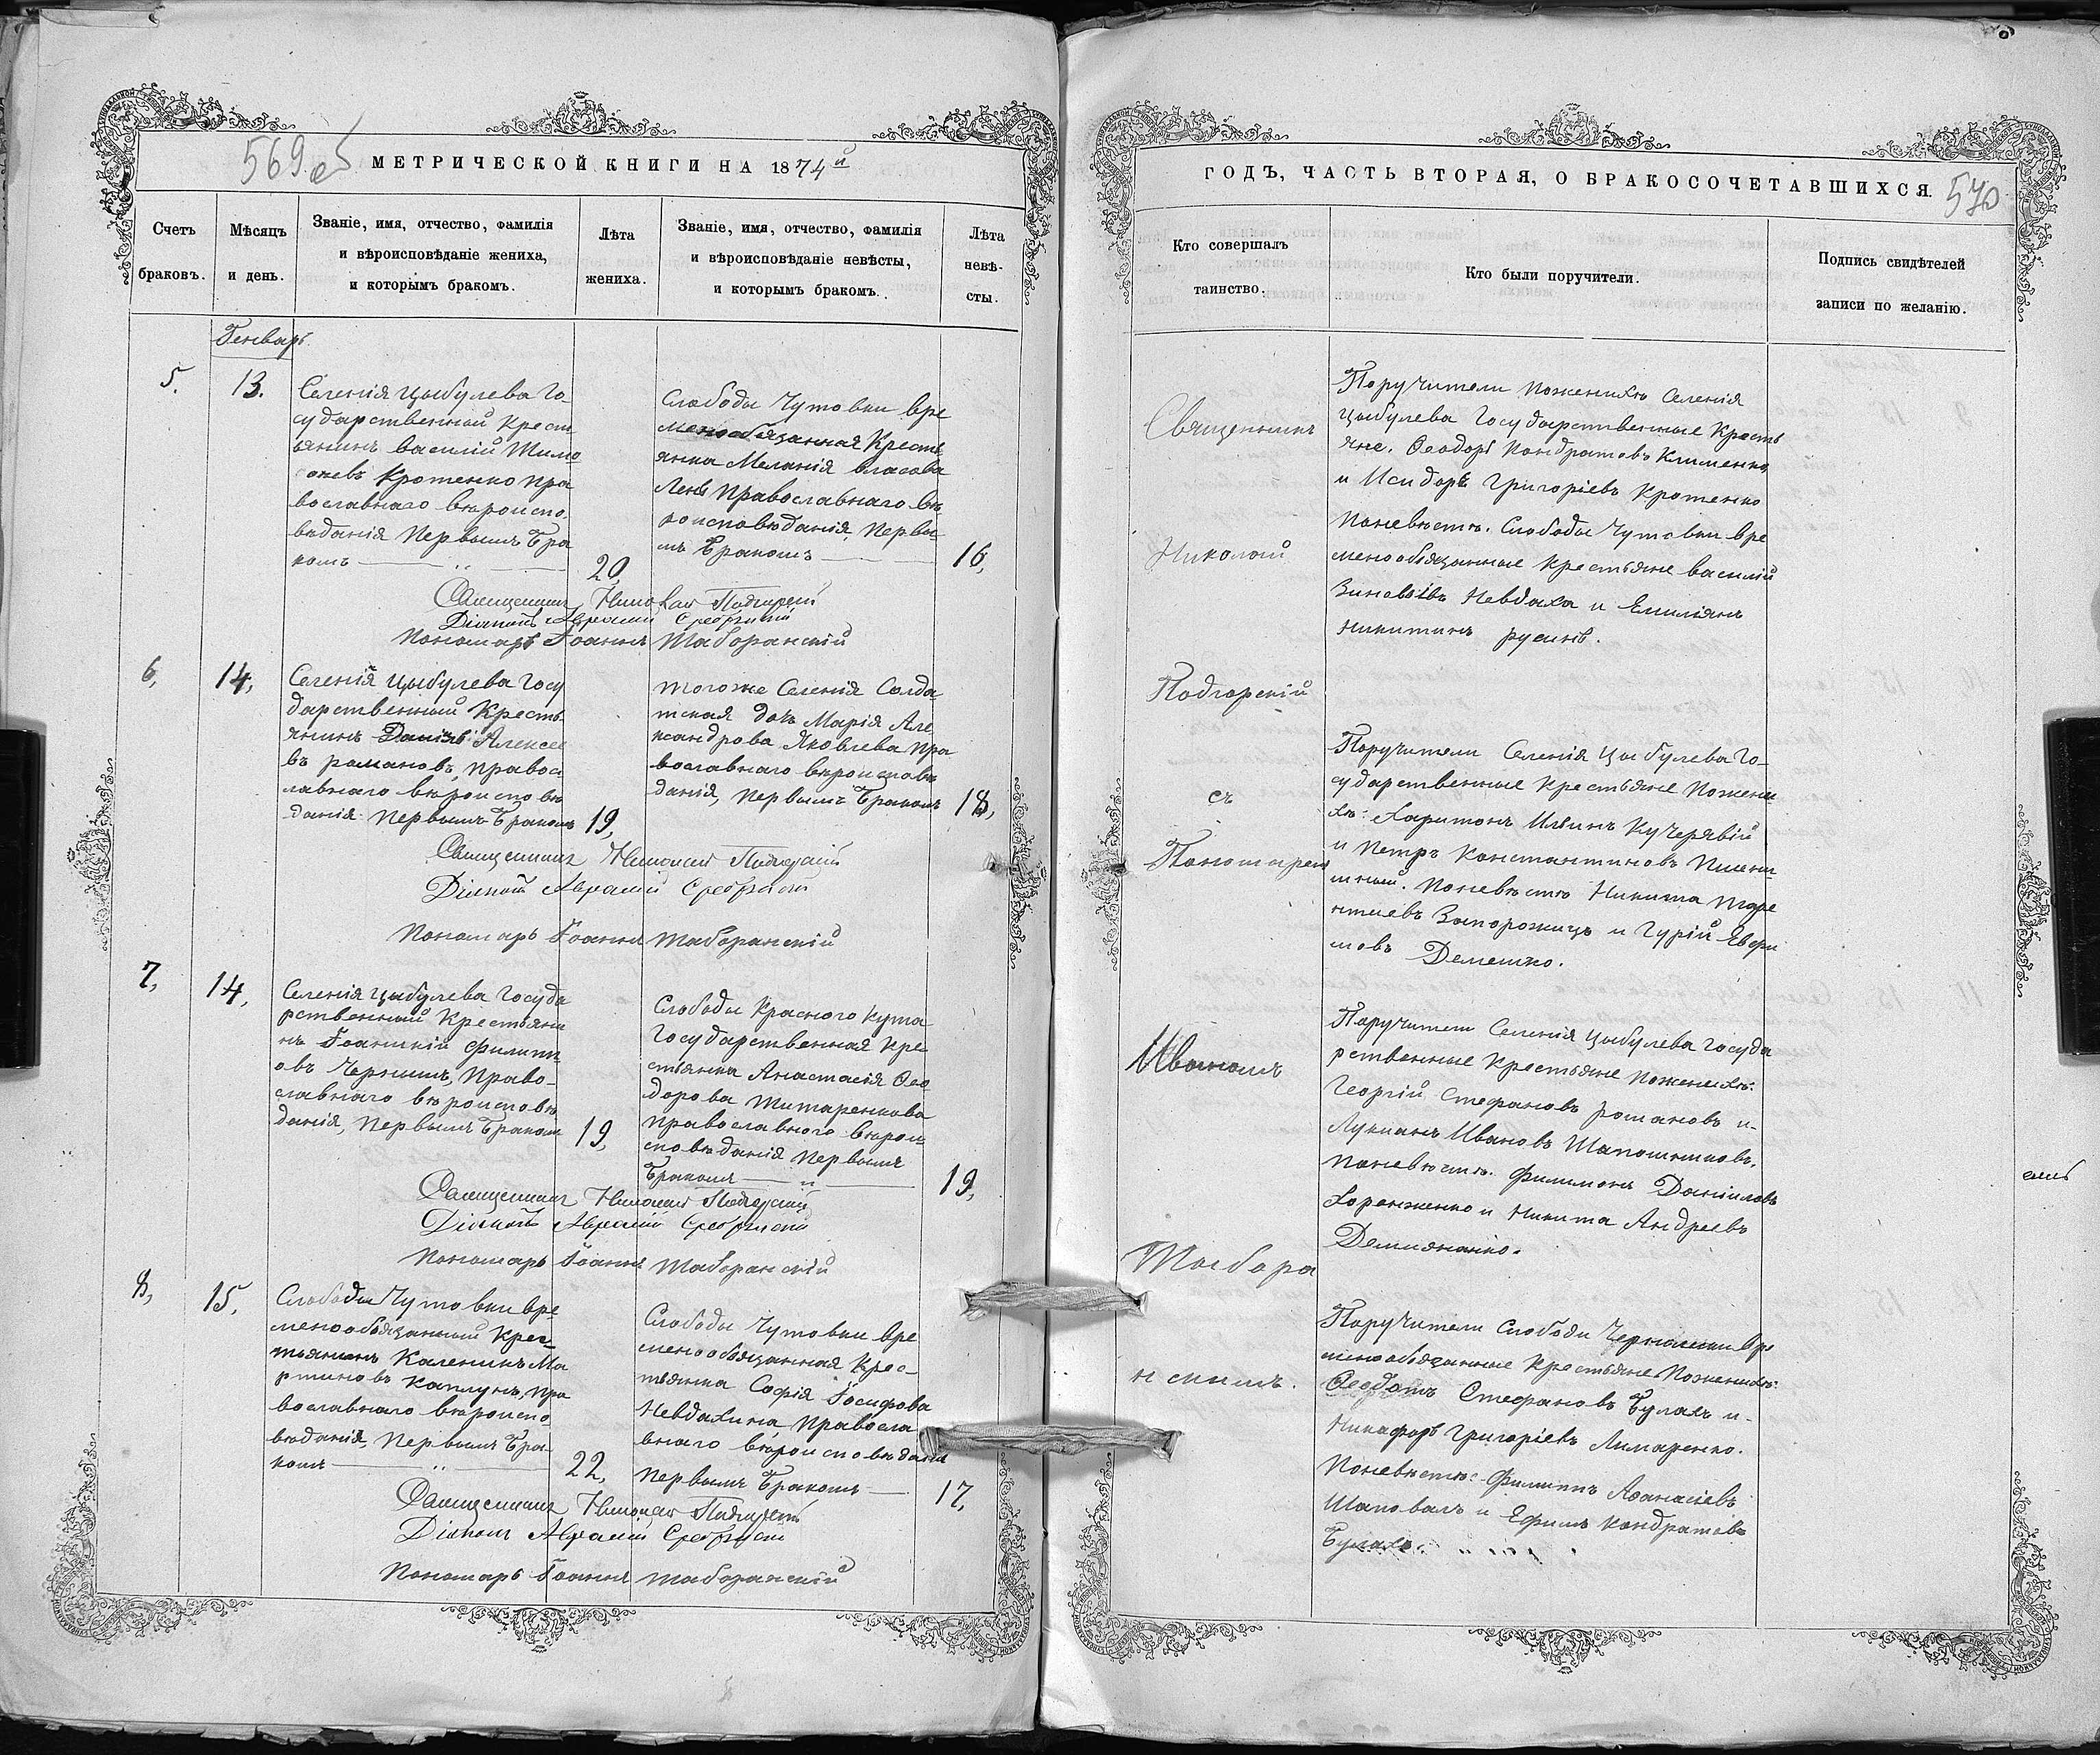 569 об
МЕТРИЧЕСКОЙ КНИГИ НА 1874й
Счетъ
браковъ.
Мѣсяцъ
и день.
Званіе, имя, отчество, фамилія
и вѣроисповѣданіе жениха,
и которымъ бракомъ.
Лѣта
жениха.
Званіе, имя, отчество, фамилія
и вѣроисповѣданіе невѣсты,
и которымъ бракомъ.
Лѣта
невѣ-
сты.
Генварь.
5.
13.
Селенія Цыбулева Го-
сударственный Крест
ьянинъ Василій Тимо
ѳеевъ Кротенко пра
вославнаго вѣроиспо
вѣданія Первымъ Бра
комъ — „ —
20,
Слободы Чутовки вре
менообязанная Кресть
янка Меланія Власова
Православнаго вѣ
роисповѣданія, Первы
мъ Бракомъ —
16,
Священникъ Николай Подгорскій
Діаконъ Аврамій
Пономарь Іоаннъ Таборанскій
6,
14,
Селенія Цыбулева Госу
дарственный Кресть
янинъ Даніилъ Алексѣе
въ Романовъ, правос
лавнаго вѣроисповѣ
данія Первымъ Бракомъ
19,
Тогоже Селенія Солда
тская дочь Марія Але
ксандрова Яковлева пра
вославнаго вѣроисповѣ
данія, Первымъ Бракомъ
18,
Священникъ Николай Подгорскій
Діаконъ Аврамій
Пономарь Іоаннъ Таборанскій
7,
14,
Селенія Цыбулева Госуда
рственный Крестьяни
нъ Іоанникій Филипп
овъ Чернышъ, Право-
славнаго вѣроисповѣ
данія, Первымъ Бракомъ
19,
Слободы Красного Кута
Государственная Кре
стьянка Анастасія Ѳео
дорова Титаренкова
православного вѣрои
споведанія Первымъ
Бракомъ — „ —
19,
Священникъ Николай Подгорскій
Діаконъ Аврамій
Пономарь Іоаннъ Таборанскій
8,
15,
Слободы Чутовки вре
менообязанный Крес
тьянинъ Каленикъ Ма
ртиновъ Каплунъ, пра
вославнаго вѣроиспо
вѣданія, Первымъ Бра-
комъ — „ —
22,
Слободы Чутовки вре
менообязанная Крес-
тьянка Софія Іосифова
Невдахина, Правосла
внаго вѣроисповѣданія
Первымъ Бракомъ —
17,
Священникъ Николай Подгорскій
Діаконъ Аврамій
Пономарь Іоаннъ Таборанскій
ГОДЪ, ЧАСТЬ ВТОРАЯ, О БРАКОСОЧЕТАВШИХСЯ.
570
Кто совершалъ
таинство.
Кто были поручители.
Подпись свидѣтелей
записи по желанію.
Священникъ
Николай
Подгорскій
съ
Пономарем
Иваномъ
Табора
нскимъ.
Поручители Поженихѣ Селенія
Цыбулева Государственные Кресть
яне. Ѳеодоръ Кондратовъ Клименко
и Исидоръ Григоріевъ Кротенко
Поневѣстѣ. Слободы Чутовки вре
менообязанные Крестьяне Василій
Зиновіевъ Невдаха и Емиліянъ
Никитинъ Русинъ.
Поручители Селенія Цыбулева Го-
сударственные Крестьяне Пожени
хѣ: Харитонъ Ильинъ Кучерявій
и Петръ Константиновъ Пшени
чный. Поневѣстѣ Никита Тере
нтіевъ Запорожицъ и Гурій Евфи
мовъ Демешко.
Поручители Селенія Цыбулева Госуда
рственные Крестьяне Поженихѣ:
Георгій Стефановъ Романовъ и-
Лукіанъ Ивановъ Шапошниковъ,
Поневѣстѣ. Филимонъ Даніиловъ
Хоренженко и Никита Андреевъ
Демияненко.
Поручители Слободы вре
менообязанные Крестьяне Поженихѣ:
Ѳеодотъ Стефановъ Булахъ и-
Никифоръ Григоріевъ Лимаренко.
Поневѣстѣ: Филиппъ Аѳанасіевъ
Шаповалъ и Ефимъ Кондратовъ
Булахъ.